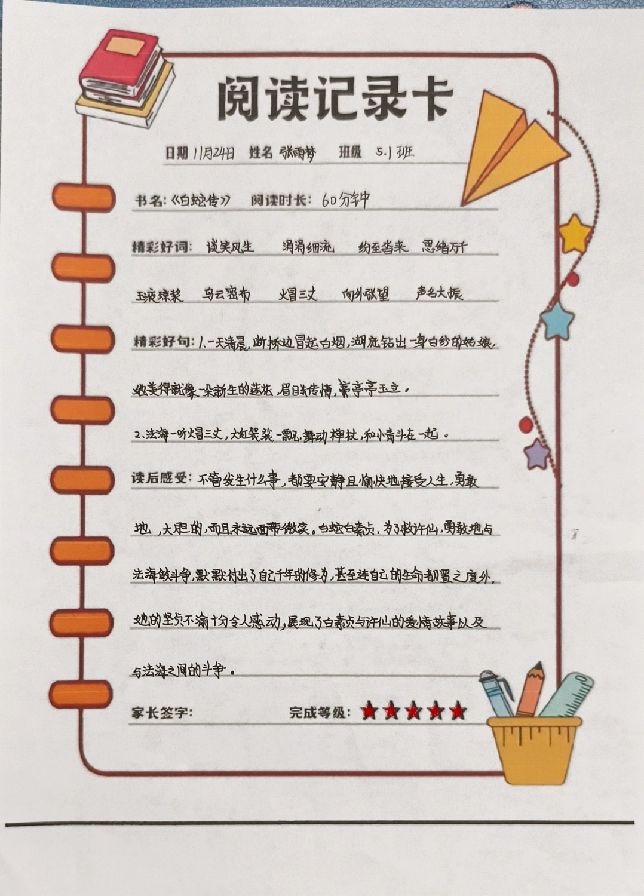 阅读记录卡
日期 11月24日 姓名 张雨梦 班级 5.1班
书名:《白蛇传》 阅读时长: 60分钟
精彩好词: 谈笑风生 涓涓细流 纷至沓来 思绪万千
玉液琼浆 乌云密布 火冒三丈 向外张望 声名大振
精彩好句:1.一天清晨,断桥边冒起白烟,湖底钻出一身白纱的姑娘,
她美得就像一朵新生的莲花,眉目传情,亭亭玉立。
2.法海一听火冒三丈,大红袈裟一飘,舞动禅杖,和小青斗在一起。
读后感受: 不管发生什么事,都要安静且愉快地接受人生,勇敢
地,大胆的,而且永远面带微笑。白蛇白素贞,为了救许仙,勇敢地与
法海做斗争,默默付出了自己千年的修为,甚至连自己的生命都置之度外,
她的坚贞不渝十分令人感动,展现了白素贞与许仙的爱情故事以及
与法海之间的斗争。
家长签字: 完成等级: